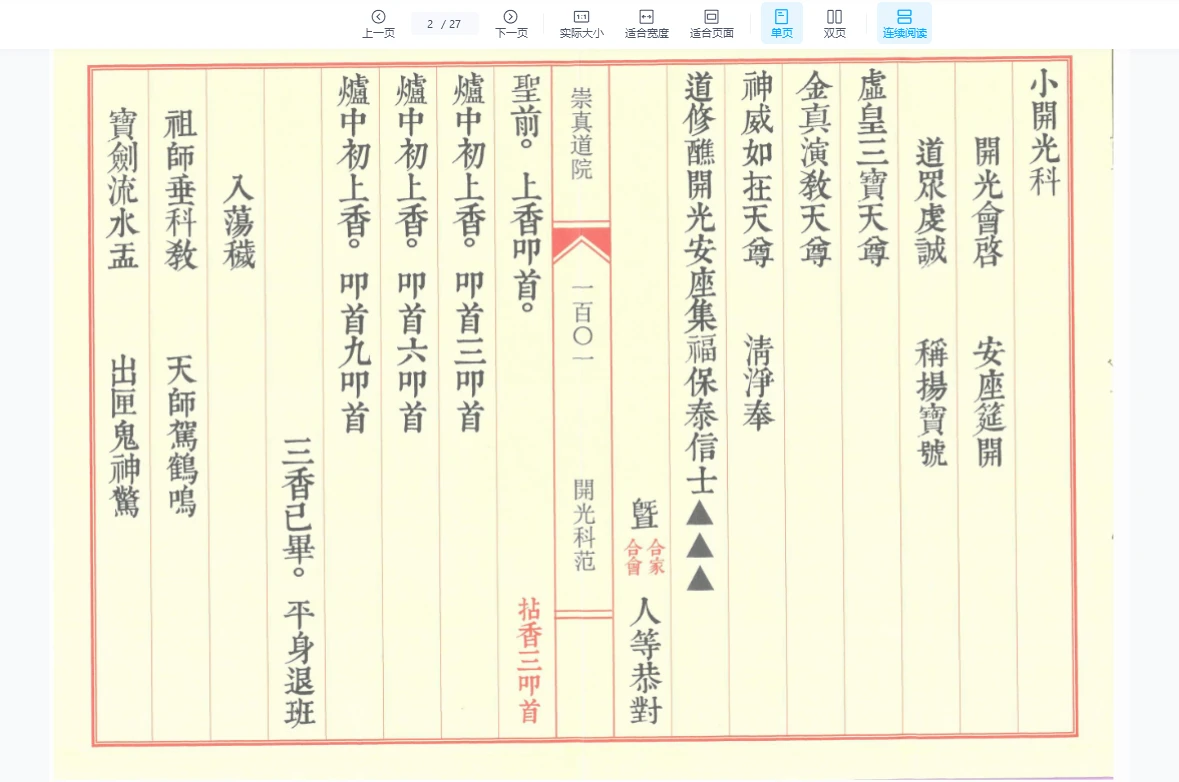 上一页
2 / 27
下一页
1:1
实际大小
适合宽度
适合页面
单页
双页
连续阅读
小開光科
開光會啓 安座筵開
道眾虔誠 稱揚寶號
虛皇三寶天尊
金真演教天尊
神威如在天尊 清淨奉
道修醮開光安座集福保泰信士▲▲▲
暨 合家 合會 人等恭對
崇真道院 一百〇一 開光科范
聖前。上香叩首。 拈香三叩首
爐中初上香。叩首三叩首
爐中初上香。叩首六叩首
爐中初上香。叩首九叩首
三香已畢。平身退班
入蕩穢
祖師垂科教 天師駕鶴鳴
寶劍流水盂 出匣鬼神驚